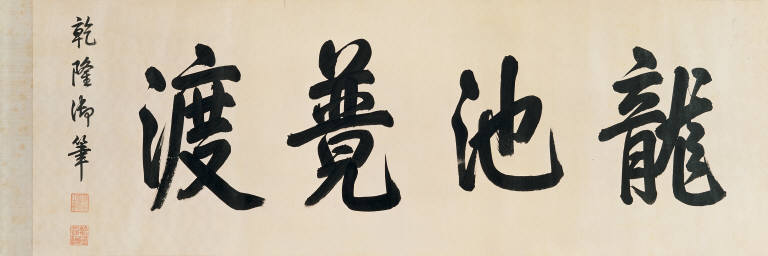 龍池競渡
乾隆御筆